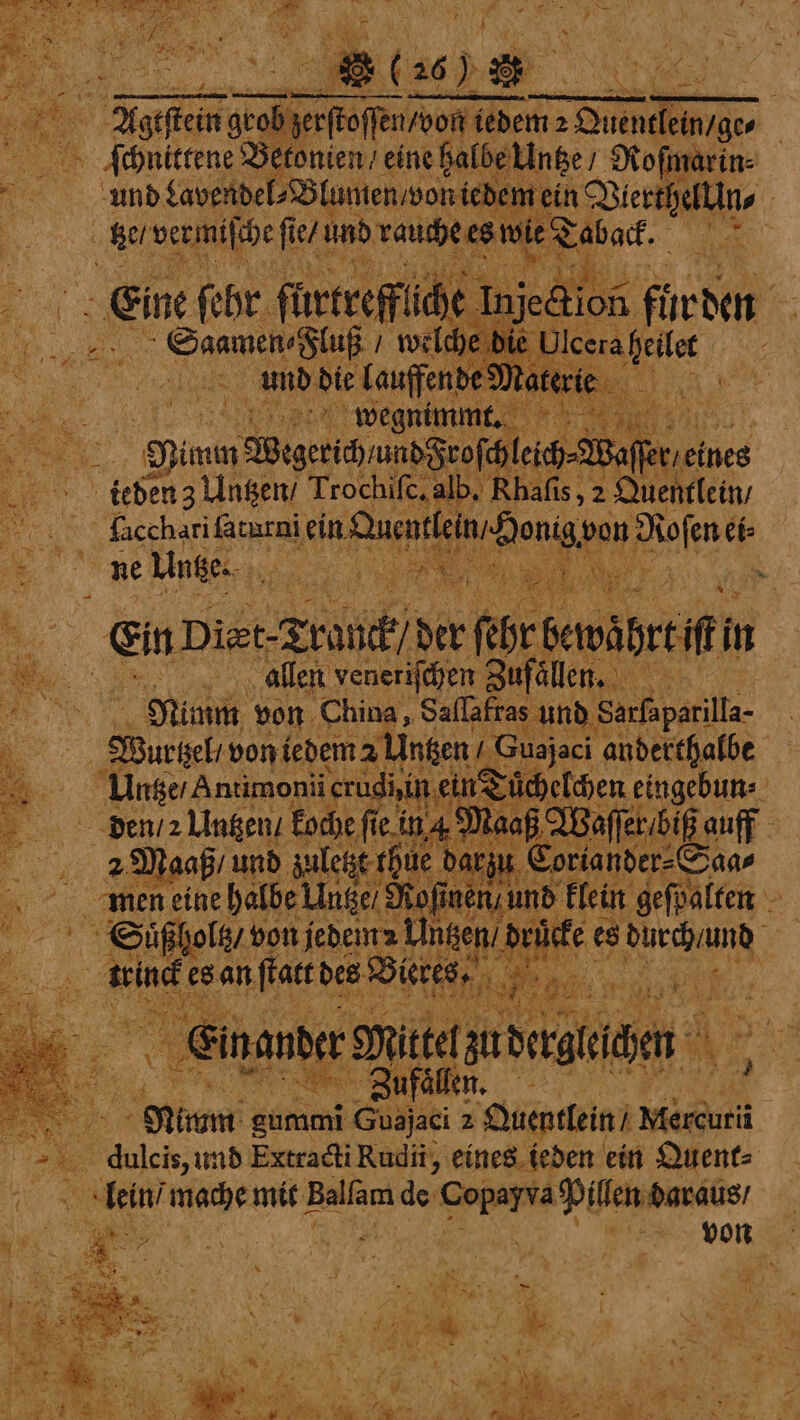 ( 26 )
Agtſtein grob zerſtoſſen/von iedem 2 Quentlein/ge⸗
ſchnittene Betonien / eine halbe Untze / Roſmarin⸗
und Lavendel⸗Blumen/von iedem ein Vierthel Un⸗
tze/ vermiſche ſie/ und rauche es wie Taback.
Eine ſehr fürtreffliche Injection für den
Saamen⸗Fluß / welche die Ulcera heilet
und die lauffende Materie
wegnimmt.
Nimm Wegerich/und Froſchleich⸗Waſſer/eines
ieden 3 Untzen/ Trochiſc. alb. Rhaſis, 2 Quentlein/
ſacchari ſaturni ein Quentlein/Honig von Roſen ei⸗
ne Untze.
Ein Diæt-Tranck/ der ſehr bewåhrt iſt in
allen veneriſchen Zufållen.
Nimm von China, Saſſafras und Sarſaparilla-
Wurtzel/ von iedem 2 Untzen / Guajaci anderthalbe
Untze/ Antimonii crudi, in ein Tůchelchen eingebun⸗
den/ 2 Untzen/ koche ſie in 4 Maaß Waſſer/biß auff
2 Maaß/ und zuletzt thue darzu Coriander⸗Saa⸗
men eine halbe Untze/ Roſinen/ und klein geſpalten
Sůßholtz/ von jedem 2 Untzen/ drůcke es durch/und
trinck es an ſtatt des Bieres.
Ein ander Mittel zu dergleichen
Zufållen.
Nimm gummi Guajaci 2 Quentlein / Mercurii
dulcis, und Extracti Rudii, eines ieden ein Quent⸗
lein/ mache mit Balſam de Copayva Pillen daraus/
von